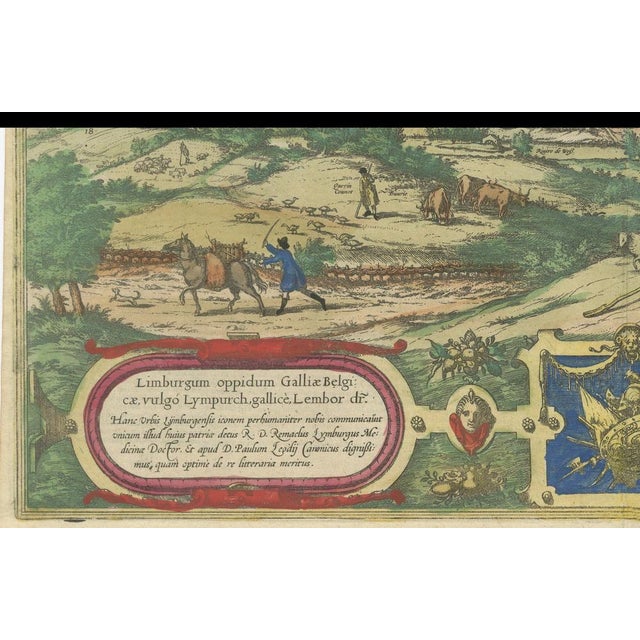 18
Limburgum oppidum Galliæ Belgi:
cæ, vulgo Lympurch, gallicè, Lembor dr̃.
Hanc Urbis Lymburgensis iconem perhumaniter nobis communicauit
vnicum illud huius patriæ decus R. D. Remaclus Lymburgus Me-
dicinæ Doctor. & apud D. Paulum Legidij Canonicus dignißi-
mus, quàm optimè de re litteraria meritus.